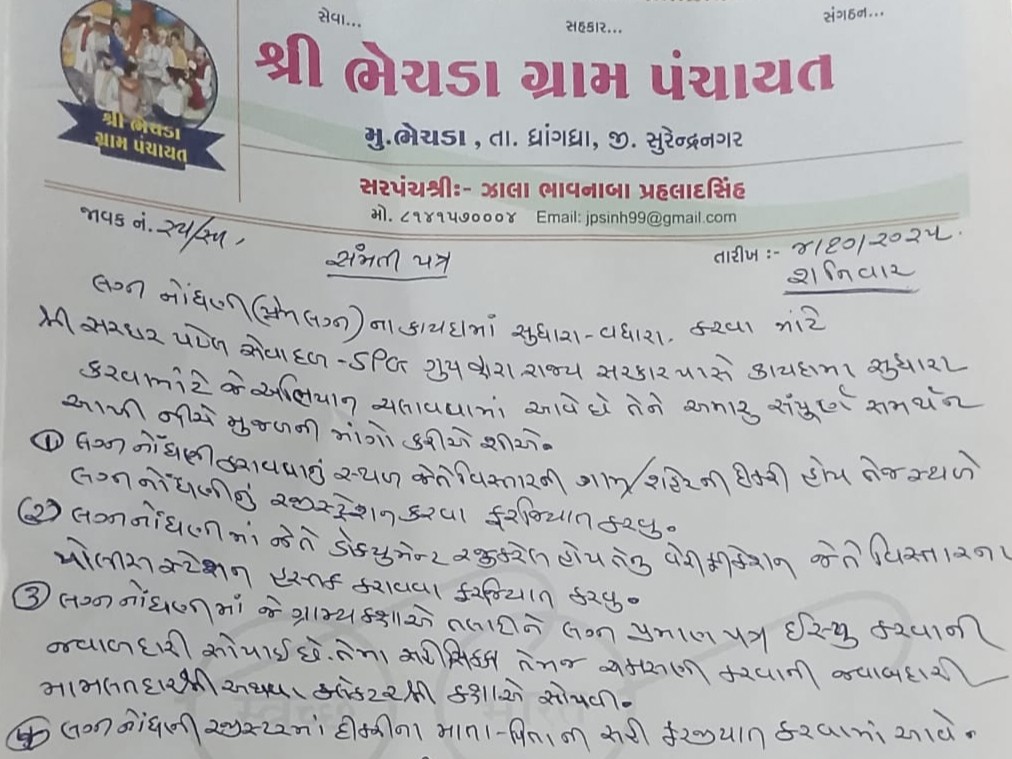 સેવા... સહકાર... સંગઠન...
શ્રી ભેચડા ગ્રામ પંચાયત
શ્રી ભેચડા
ગ્રામ પંચાયત
મુ.ભેચડા , તા. ધ્રાંગધ્રા, જી. સુરેન્દ્રનગર
સરપંચશ્રીઃ- ઝાલા ભાવનાબા પ્રહલાદસિંહ
મો. ૮૧૪૧૫૭૦૦૦૪ Email: jpsinh99@gmail.com
જાવક નં. ૨૫/૨૫,
તારીખ :- ૪/૧૦/૨૦૨૫.
સંમતી પત્ર
શનિવાર
લગ્ન નોંધણી (પ્રેમલગ્ન) ના કાયદામાં સુધારા-વધારા. કરવા માંટે
શ્રી સરદાર પટેલ સેવાદળ -SPG ગ્રુપ દ્વારા રાજ્ય સરકાર પાસે કાયદામા સુધારા
કરવા માંટે જે અભિયાન ચલાવવામાં આવે છે તેને અમારુ સંપૂર્ણ સમર્થન
આપી નીચે મુજબની માંગો કરીએ છીએ.
① લગ્ન નોંધણી કરાવવાનું સ્થળ જેતે વિસ્તારની ગામ/શહેરની દીકરી હોય તેજ સ્થળે
લગ્ન નોંધણીનું રજીસ્ટ્રેશન કરવા ફરજિયાત કરવુ.
② લગ્ન નોંધણીમાં જેતે ડોક્યુમેન્ટ રજુકરેલ હોય તેનુ વેરીફીકેશન જેતે વિસ્તારના
પોલીસ સ્ટેશન હસ્તક કરાવવા ફરજિયાત કરવુ.
③ લગ્ન નોંધણીમાં જે ગ્રામ્યકક્ષાએ તલાટીને લગ્ન પ્રમાણ પત્ર ઈસ્યુ કરવાની
જવાબદારી સોંપાઈ છે. તેમા સહી સિક્કા તેમજ ચકાસણી કરવાની જવાબદારી
મામલતદારશ્રી અથવા કલેક્ટરશ્રી કક્ષાએ સોંપવી.
④ લગ્ન નોંધણી રજીસ્ટરમાં દીકરીના માતા-પિતાની સહી ફરજીયાત કરવામાં આવે.